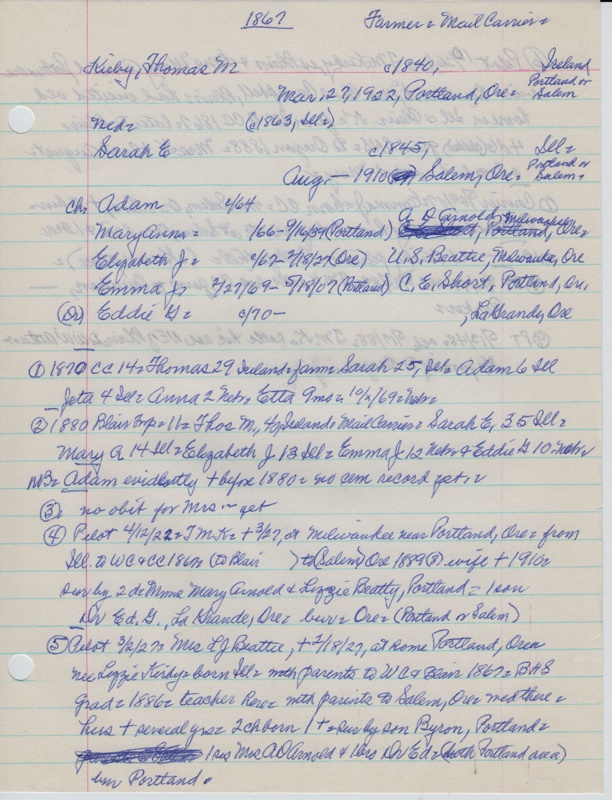 1867 Farmer = Mail Carrier =
Kirby, Thomas M c1840, Ireland
Mar. 27, 1922, Portland, Ore = Portland or Salem
med = (c1863, Ill =)
Sarah E c1845, Ill =
Aug. — 1910 Salem, Ore = Portland or Salem =
ch. Adam c/64
Mary Anna = c/66 - 9/16/39 (Portland) A. D. Arnold, Milwaukee, Ore =
Elizabeth J = c/67 - 2/18/27 (Ore) U. S. Beattie, Milwaukee, Ore
Emma J = 3/27/69 - 5/18/07 (Portland) C. E. Short, Portland, Ore,
(Dr) Eddie G = c/70 — , LaGrande, Ore
① 1870 CC 14 = Thomas 29 Ireland = farm = Sarah 25, Ill = Adam 6 Ill
Jeta 4 Ill = Anna 2 Nebr, Etta 9 mo = 10/2/69 = Nebr =
② 1880 Blair Twp = 11 = Thos M, 40, Ireland = Mail Carrier = Sarah E, 35 Ill =
Mary A 14 Ill = Elizabeth J, 13 Ill = Emma J 12 Nebr & Eddie G 10 = Nebr =
NB = Adam evidently + before 1880 = no cem record yet =
③ no obit for Mrs — yet
④ Pilot 4/12/22 = T M K = + 3/27, at Milwaukee near Portland, Ore = from
Ill. to WC & CC 1867 (to Blair ) to (Salem) Ore 1889 (?) wife + 1910 =
sur by 2 d = Mmme Mary Arnold & Lizzie Beatty, Portland = 1 son
Dr Ed. G., La Grande, Ore = bur = Ore = (Portland or Salem)
⑤ Pilot 3/2/27 = Mrs L J Beattie, + 2/18/27, at home Portland, Oren
nee Lizzie Kirby = born Ill = with parents to WC & Blair 1867 = BHS
grad = 1886 = teacher here = with parents to Salem, Ore = med there =
hus + several yrs = 2 ch born 1 + = sur by son Byron, Portland =
1 sis Mrs A D Arnold & 1 bro Dr Ed = (both Portland area)
bur Portland.